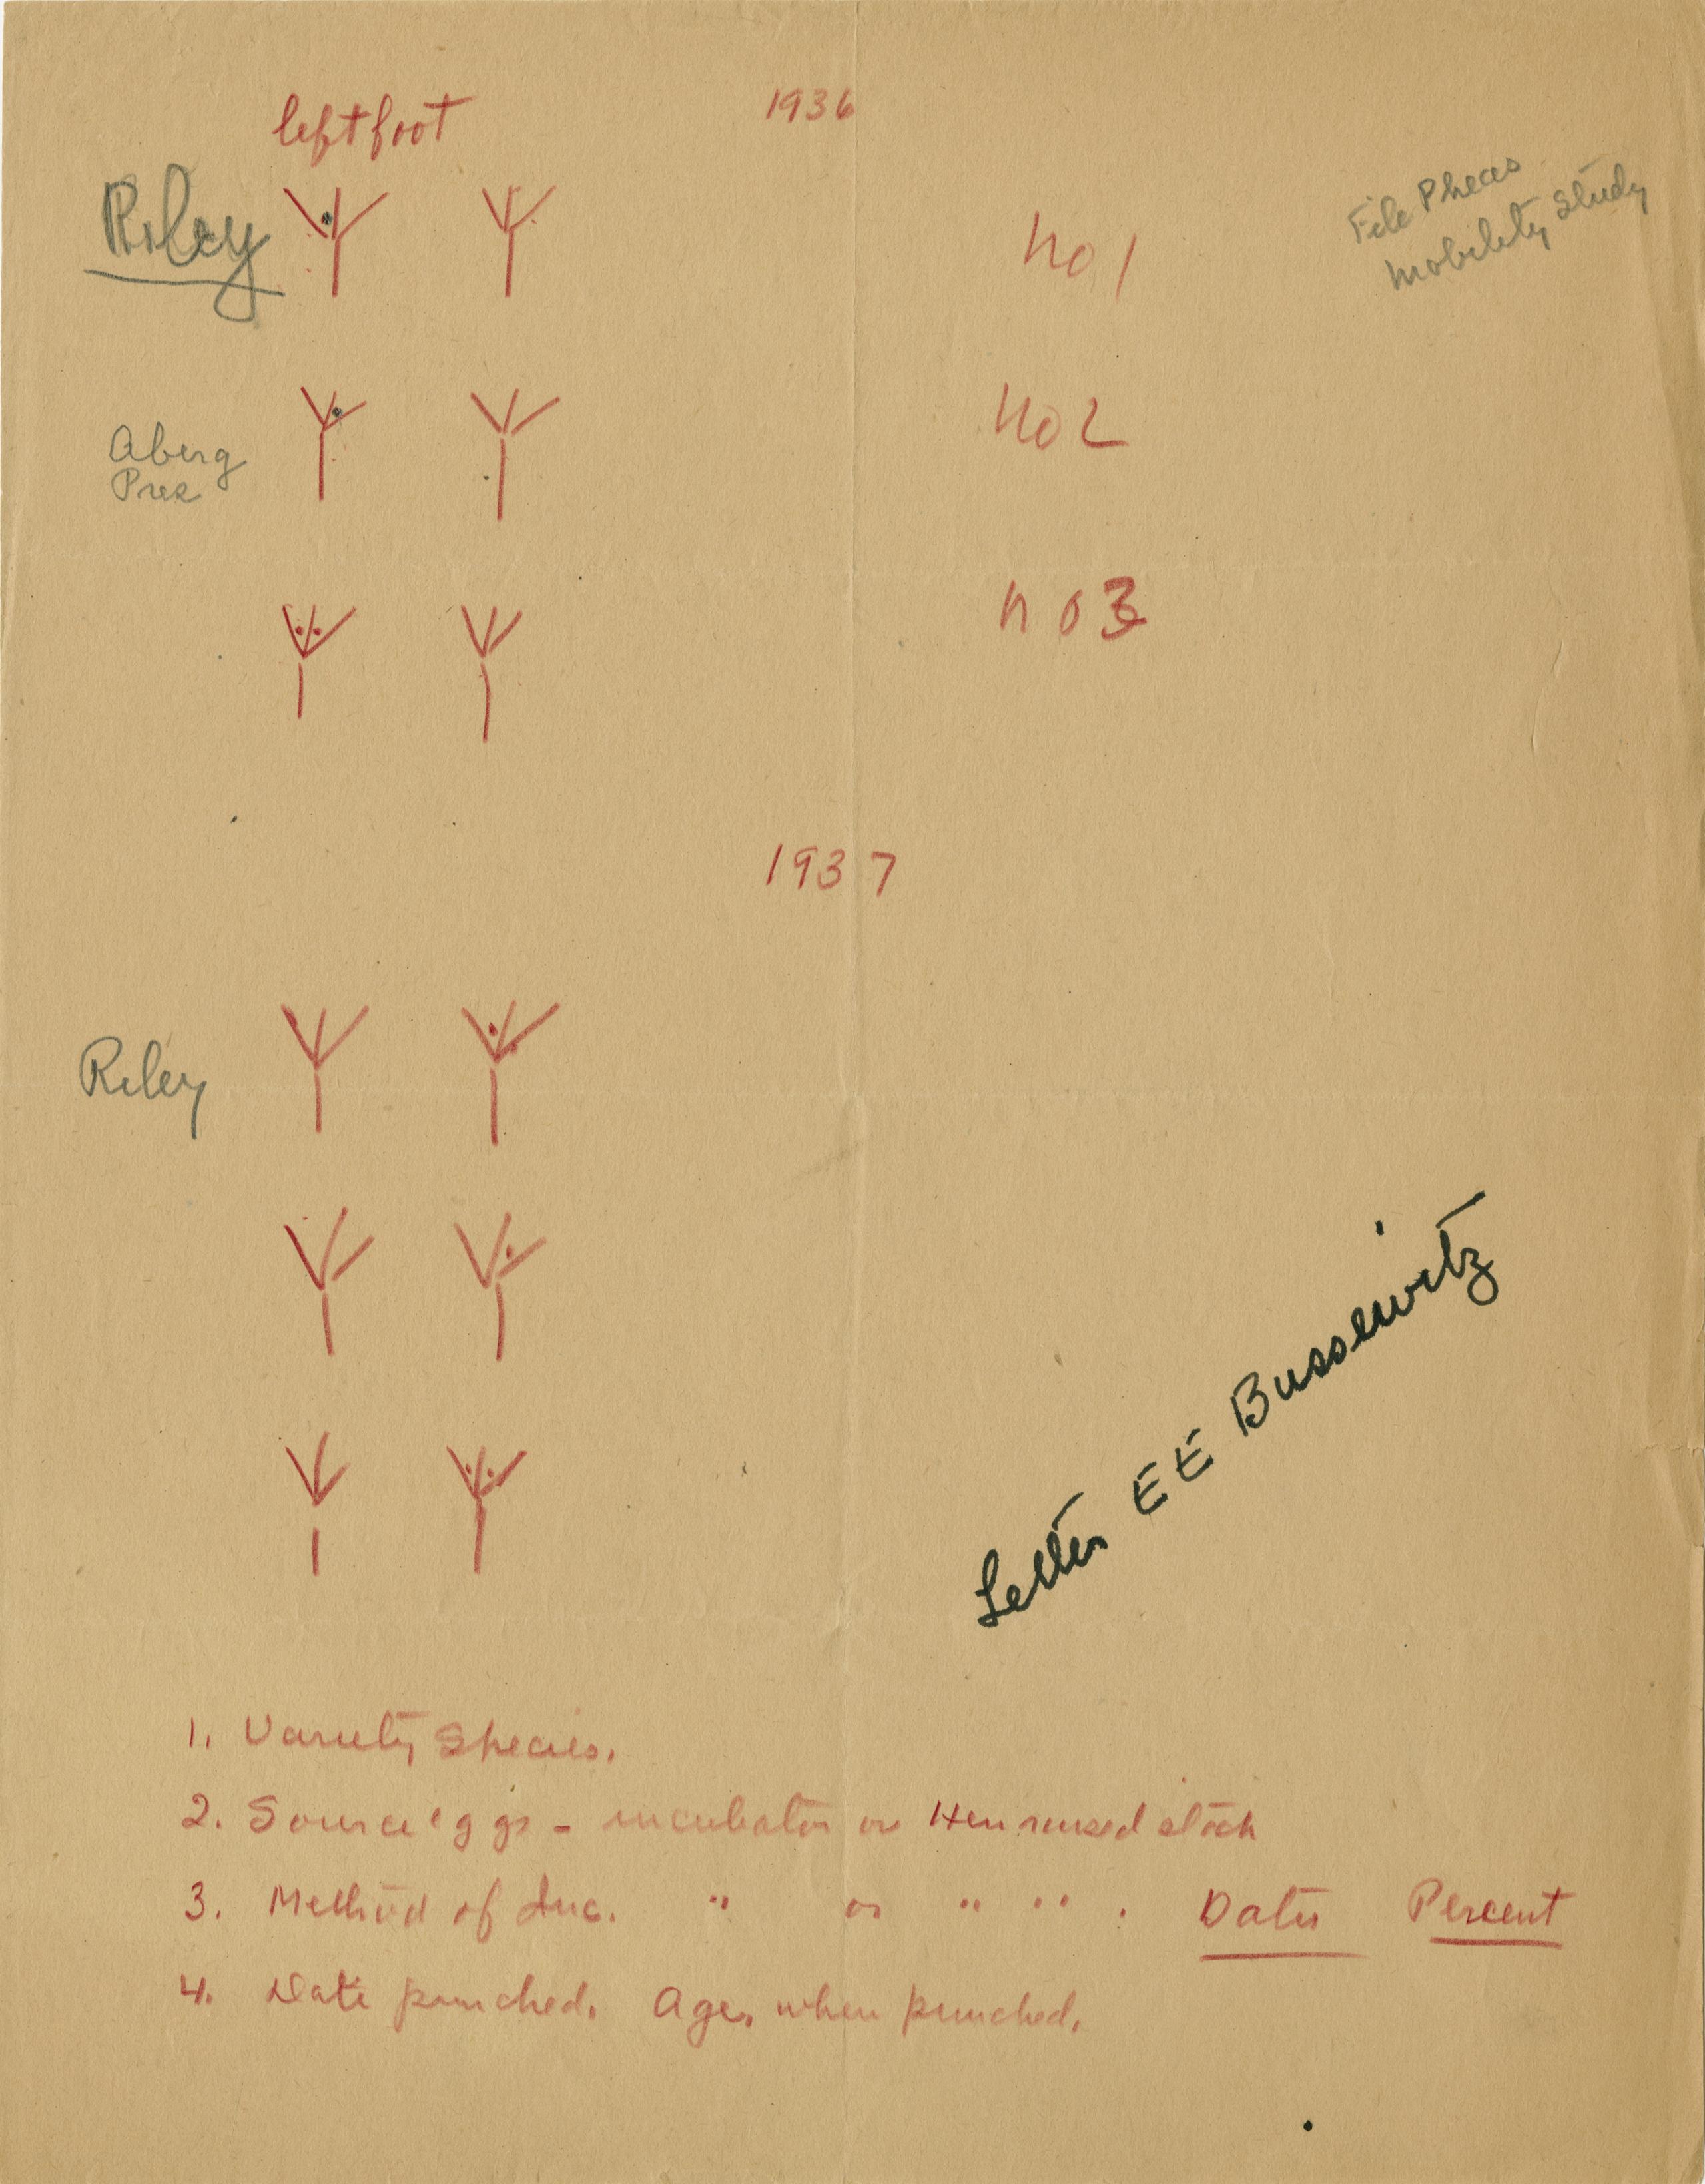 1936
left foot
Riley
no 1
File Pheas
Mobility Study
no 2
Aberg
Prez
no 3
1937
Riley
Letter E E Bussewitz
1. Variety Species.
2. Source eggs - incubator or Hen raised stock
3. Method of Inc. " or " " . Dates Percent
4. Date punched. Age, when punched.